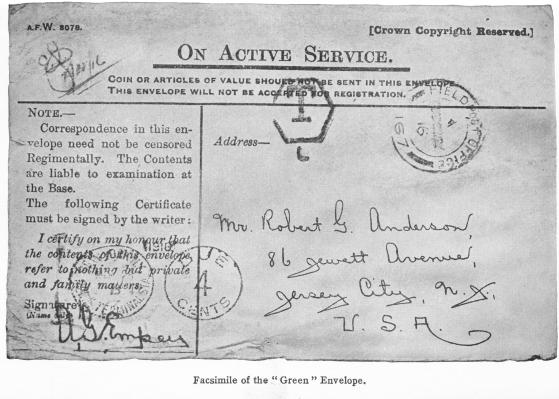 A.F.W. 3078.
[Crown Copyright Reserved.]
ON ACTIVE SERVICE.
COIN OR ARTICLES OF VALUE SHOULD NOT BE SENT IN THIS ENVELOPE.
THIS ENVELOPE WILL NOT BE ACCEPTED FOR REGISTRATION.
T
FIELD POST OFFICE
4
167
NOTE.—
Correspondence in this en-
velope need not be censored
Regimentally. The Contents
are liable to examination at
the Base.
The following Certificate
must be signed by the writer:
I certify on my honour that
the contents of this envelope
refer to nothing but private
and family matters.
Signature
(Name only)
A.G. Empey
1916
DUE
4
CENTS
Address—
Mr. Robert G. Anderson,
86 Jewett Avenue,
Jersey City, N.J.
U.S.A.
Facsimile of the "Green" Envelope.